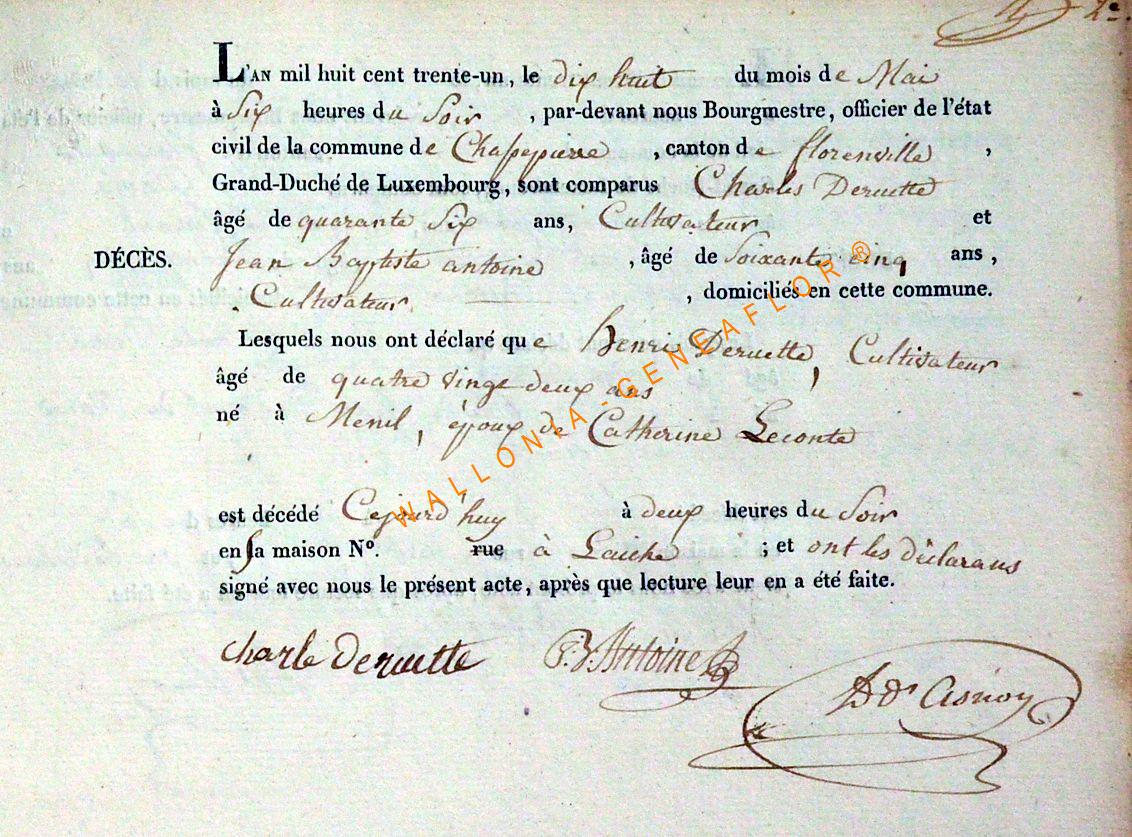 2e.
L'AN mil huit cent trente-un, le dix huit du mois de Mai
à Six heures du Soir , par-devant nous Bourgmestre, officier de l'état
civil de la commune de Chassepierre , canton de florenville ,
Grand-Duché de Luxembourg, sont comparus Charles Deruette
âgé de quarante Six ans, Cultivateur et
DÉCÈS. Jean Baptiste antoine , âgé de Soixante cinq ans ,
Cultivateur , domiciliés en cette commune.
Lesquels nous ont déclaré que henri Deruette, Cultivateur
âgé de quatre vingt deux ans
né à Menil, époux de Catherine Leconte
est décédé Cejourd'huy à deux heures du Soir
en Sa maison N°. rue à Laiche ; et ont les déclarans
signé avec nous le présent acte, après que lecture leur en a été faite.
charle Deruette J. B. Antoine
WALLONIA-GENEAFLOR ®